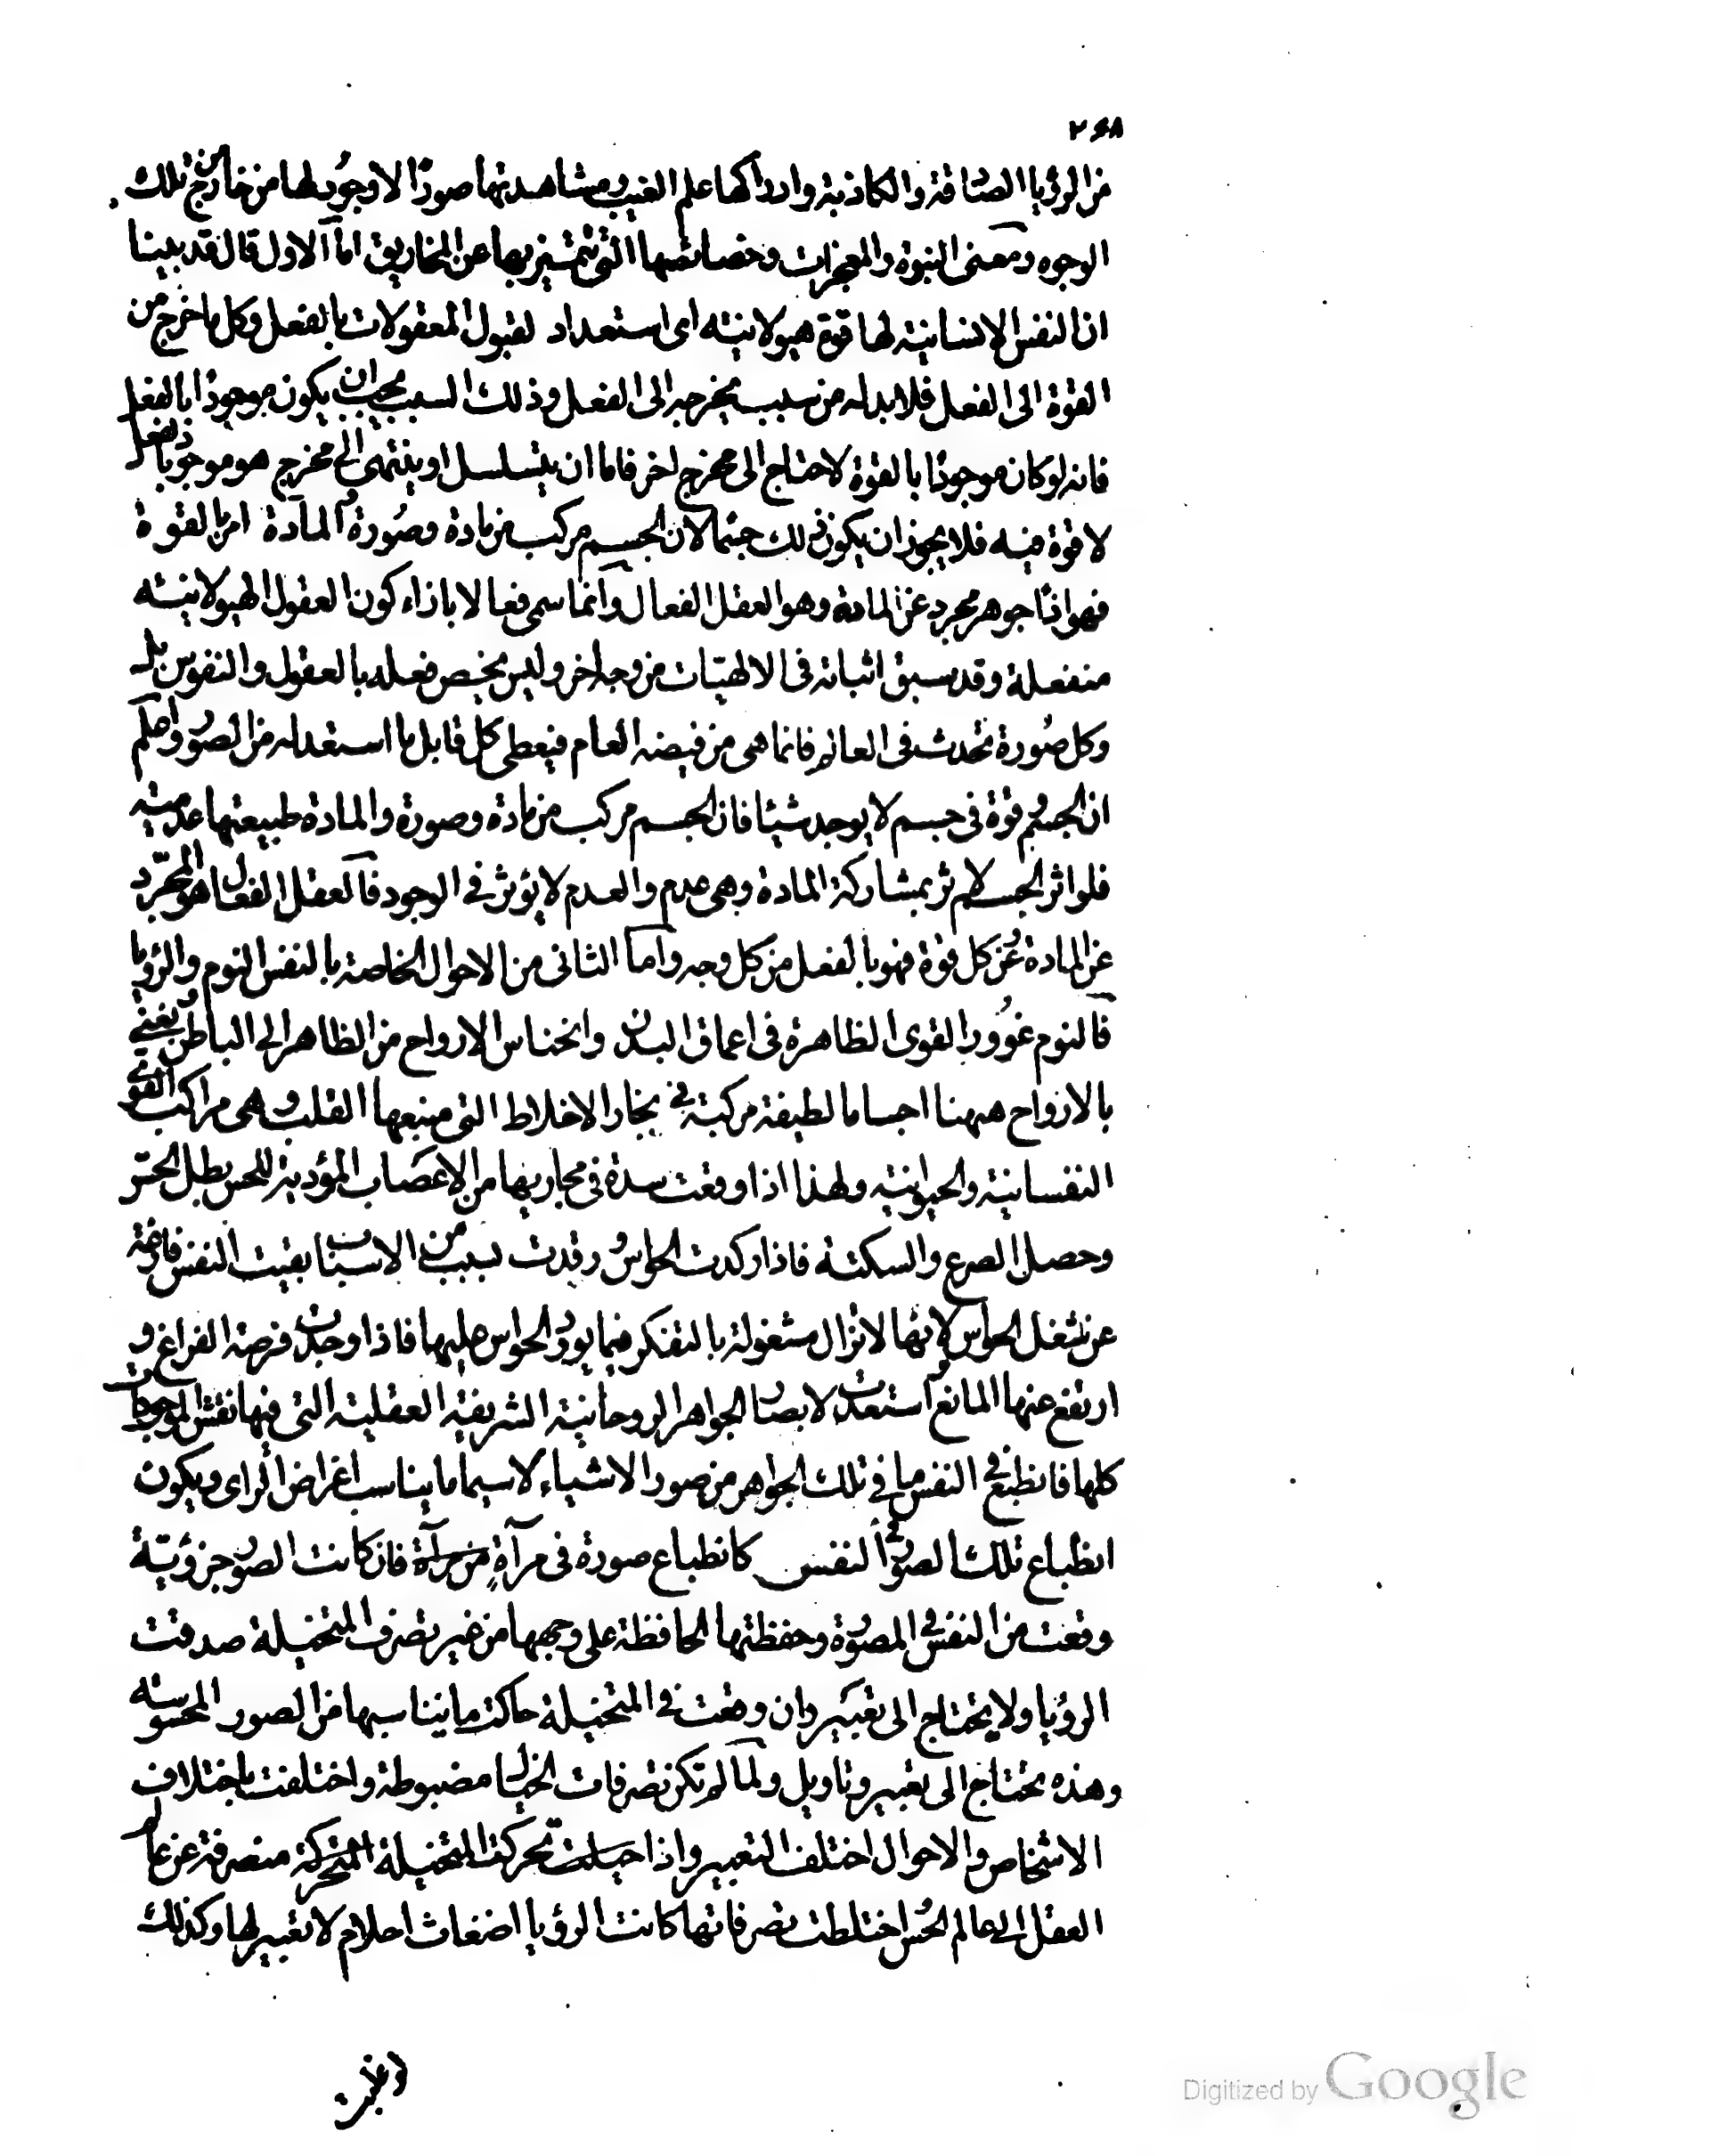 ٢٦٨
من الرؤيا الصادقة والكاذبة وادراكها علم الغيب ومشاهدتها صورًا لا وجود لها من خارج من تلك
الوجوه ومعنى النبوة والمعجزات وخصائصها التى تتميز بها عن المخاريق اما الاول قال قد بينا
ان النفس الانسانية لها قوة هيولانية اى استعداد لقبول المعقولات بالفعل وكل ما خرج من
القوة الى الفعل فلا بد له من سبب يخرجه الى الفعل وذلك السبب يجب ان يكون موجودًا بالفعل
فانه لو كان موجودًا بالقوة لاحتاج الى مخرج اخر فاما ان يتسلسل او ينتهى الى مخرج هو موجود بالفعل
لا قوة فيه فلا يجوز ان يكون ذلك جسمًا لان الجسم مركب من مادة وصورة والمادة امر بالقوة
فهو اذًا جوهر مجرد عن المادة وهو العقل الفعال وانما سمى فعالا بازاء كون العقول الهيولانية
منفعلة وقد سبق اثباته فى الالهيّات من وجه اخر وليس يخيص فعله بالعقول والنفوس بل
وكل صورة تحدث فى العالم فانما هى من فيضه العام فيعطى كل قابل ما استعد له من الصور واعلم
ان الجسم وقوة فى جسم لا يوجد شيئا فان الجسم مركب من مادة وصورة والمادة طبيعتها عدمية
فلو اثر الجسم لاثر بمشاركة المادة وهى عدم والعدم لا يؤثر فى الوجود فالعقل الفعال هو المجرّد
عن المادة وعن كل قوة فهو بالفعل من كل وجه واما الثانى من الاحوال الخاصة بالنفس النوم والرؤيا
فالنوم غوور القوى الظاهرة فى اعماق البدن وانخناس الارواح من الظاهر الى الباطن ونعنى
بالارواح ههنا اجساما لطيفة مركبة فى بخار الاخلاط التى منبعها القلب وهى مراكب القوى
النفسانية والحيوانية ولهذا اذا وقعت سدة فى مجاريها من الاعصاب المؤدية للحس بطل الحسّ
وحصل الصرع والسكتة فاذا ركدت الحواس ورقدت لسبب من الاسباب بقيت النفس فارغة
عن شغل الحواس لانها لا تزال مشغولة بالتفكر فيما يورد الحواس عليها فاذا وجدت فرصة الفراغ و
ارتفع عنها المانع استعدت لابصار الجواهر الروحانية الشريفة العقلية التى فيها نقش الموجودات
كلها فانطبع فى النفس ما فى تلك الجواهر من صور الاشياء لا سيما ما يناسب اغراض الراى ويكون
انطباع تلك الصور فى النفس كانطباع صورة فى مرآةٍ من مرآة فان كانت الصور جزؤيّة
وقعت من النفس فى المصورة وحفظتها الحافظة على وجهها من غير تصرف المتخيلة صدقت
الرؤيا ولا يحتاج الى تعبير وان وقعت فى المتخيلة حاكت ما يناسبها من الصور المحسوسة
وهذه يحتاج الى تعبير وتاويل ولما لم تكن تصرفات الخيال مضبوطة واختلفت باختلاف
الاشخاص والاحوال اختلف التعبير واذا تحركت المتخيلة منصرفة عن عالم
العقل الى عالم الحس اختلطت تصرفاتها كانت الرؤيا اضغاث احلام لا تعبير لها وكذلك
Digitized by Google